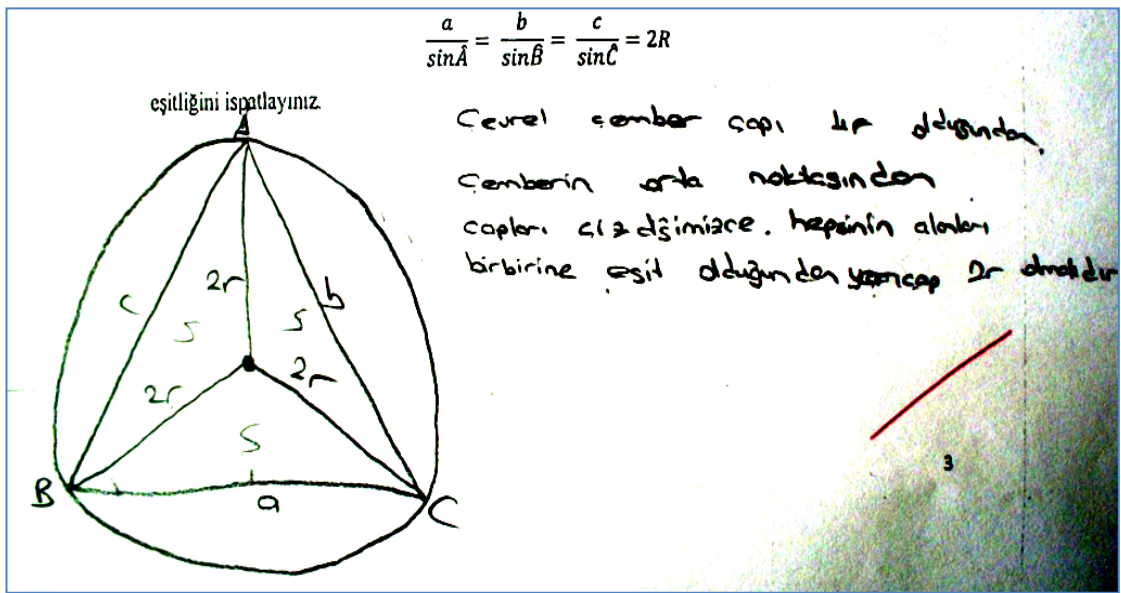 a/sinÂ = b/sinB̂ = c/sinĈ = 2R
eşitliğini ispatlayınız.
Çevrel çember çapı 4r olduğundan,
Çemberin orta noktasından
çapları çizdiğimizce. hepsinin alanları
birbirine eşit olduğundan yarıçap 2r olmalıdır
A
c
2r
b
S
S
2r
2r
S
B
a
C
3